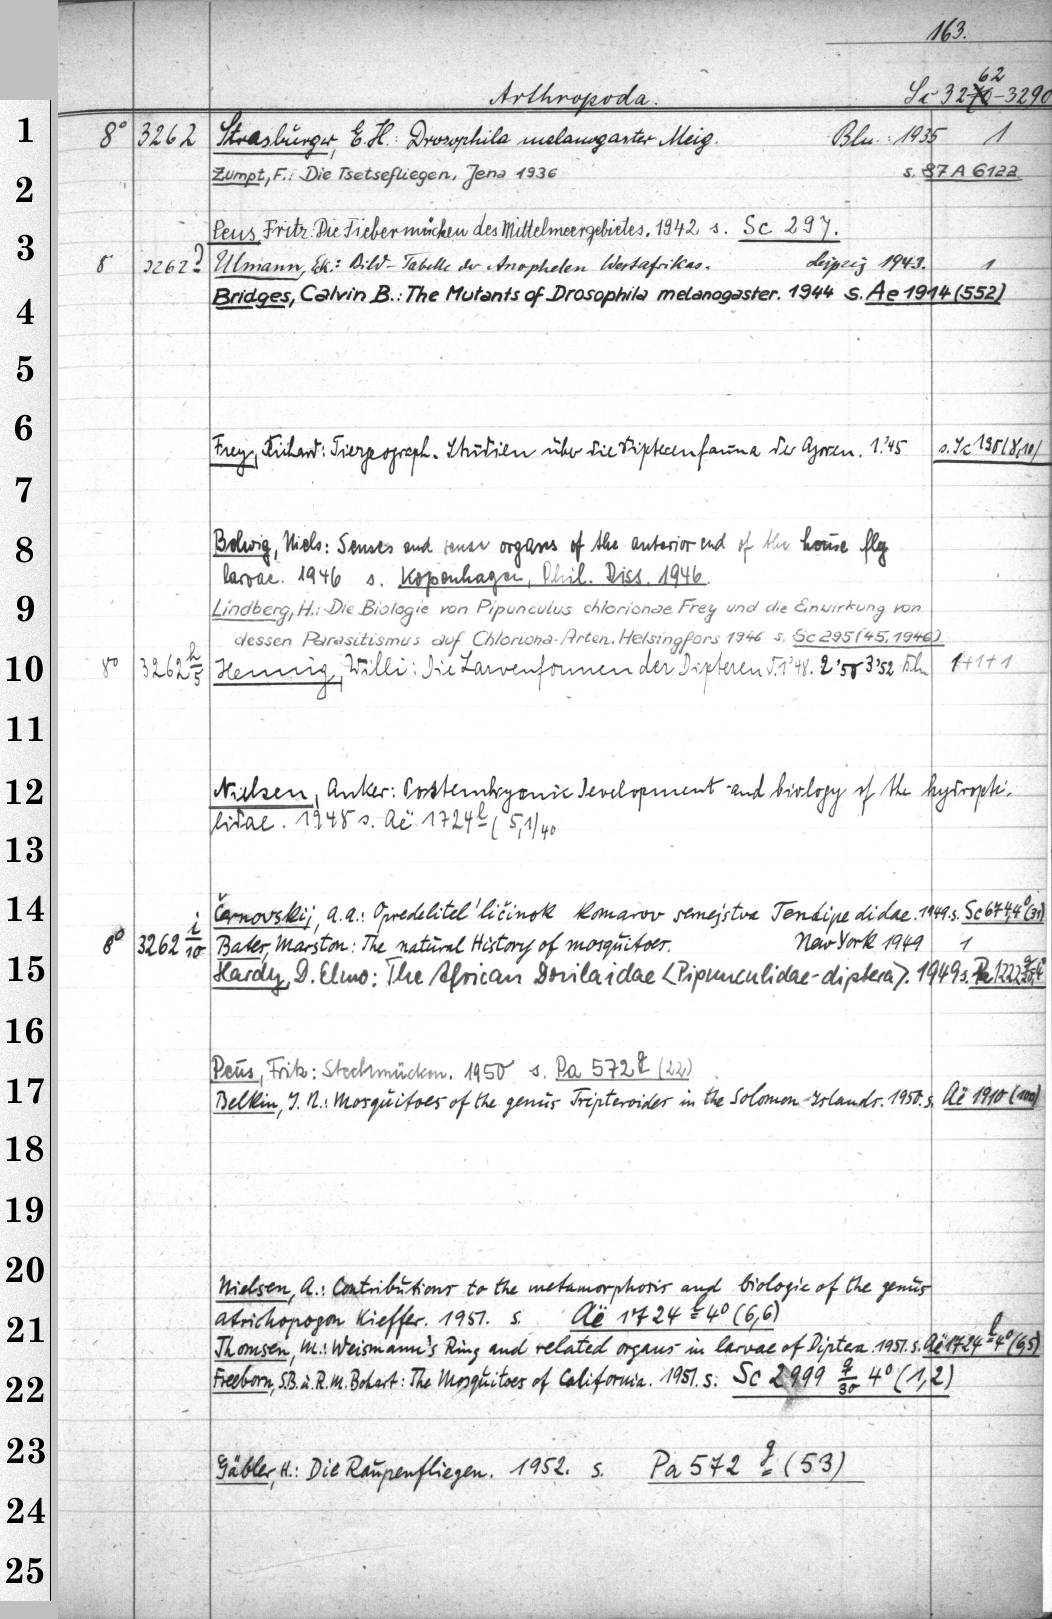 163.
Arthropoda. Sc 3262-3290
1 8° 3262 Strasburger, E. H.: Drosophila melanogaster Meig. Bln.: 1935 1
2 Zumpt, F.: Die Tsetsefliegen. Jena 1936 s. 87 A 6122
Peus, Fritz: Die Fiebermücken des Mittelmeergebietes. 1942 s. Sc 297.
3 8° 3262 Ulmann, Ek.: Bild-Tabelle der Anophelen Westafrikas. Leipzig 1943. 1
4 Bridges, Calvin B.: The Mutants of Drosophila melanogaster. 1944 s. Ae 1914 (552)
5
6
Frey, Richard: Tiergeograph. Studien über die Dipterenfauna der Azoren. 1.'45
7
8 Bolwig, Niels: Senses and sense organs of the anterior end of the house fly
larvae. 1946 s. Kopenhagen, Phil. Diss. 1946.
9 Lindberg, H.: Die Biologie von Pipunculus chlorionae Frey und die Einwirkung von
dessen Parasitismus auf Chloriona-Arten. Helsingfors 1946 s. Sc 295 (45, 1946)
10 8° 3262 h/5 Hennig, Willi: Die Larvenformen der Dipteren T. 1'48. 2'50 3'52 Bln 1+1+1
11
12 Nielsen, Anker: Postembryonic Development and biology of the hydropti-
lidae. 1948 s. Aë 1724 (5,1) 40
13
14 Černovskij, A. A.: Opredelitel' ličinok komarov semejstva Tendipedidae. 1949. s. Sc 674,4° (31)
8° 3262 i/10 Bates, Marston: The natural History of mosquitoes. New York 1949 1
15 Hardy, D. Elmo: The African Dorilaidae <Pipunculidae-diptera>. 1949 s.
16
Peus, Fritz: Stechmücken. 1950 s. Pa 572 g (22)
17 Belkin, J. N.: Mosquitoes of the genus Tripteroides in the Solomon Islands. 1950. s. Aë 1910 (100)
18
19
20 Nielsen, A.: Contributions to the metamorphosis and biologie of the genus
Atrichopogon Kieffer. 1951. s. Aë 1724 4° (6,6)
21 Thomsen, M.: Weismann's Ring and related organs in larvae of Diptera. 1951. s. Aë 1724 l 4° (6,5)
22 Freeborn, S.B. u. R. M. Bohart: The Mosquitoes of California. 1951. s. Sc 2999 g/30 4° (1,2)
23 Gäbler, H.: Die Raupenfliegen. 1952. s. Pa 572 g (53)
24
25